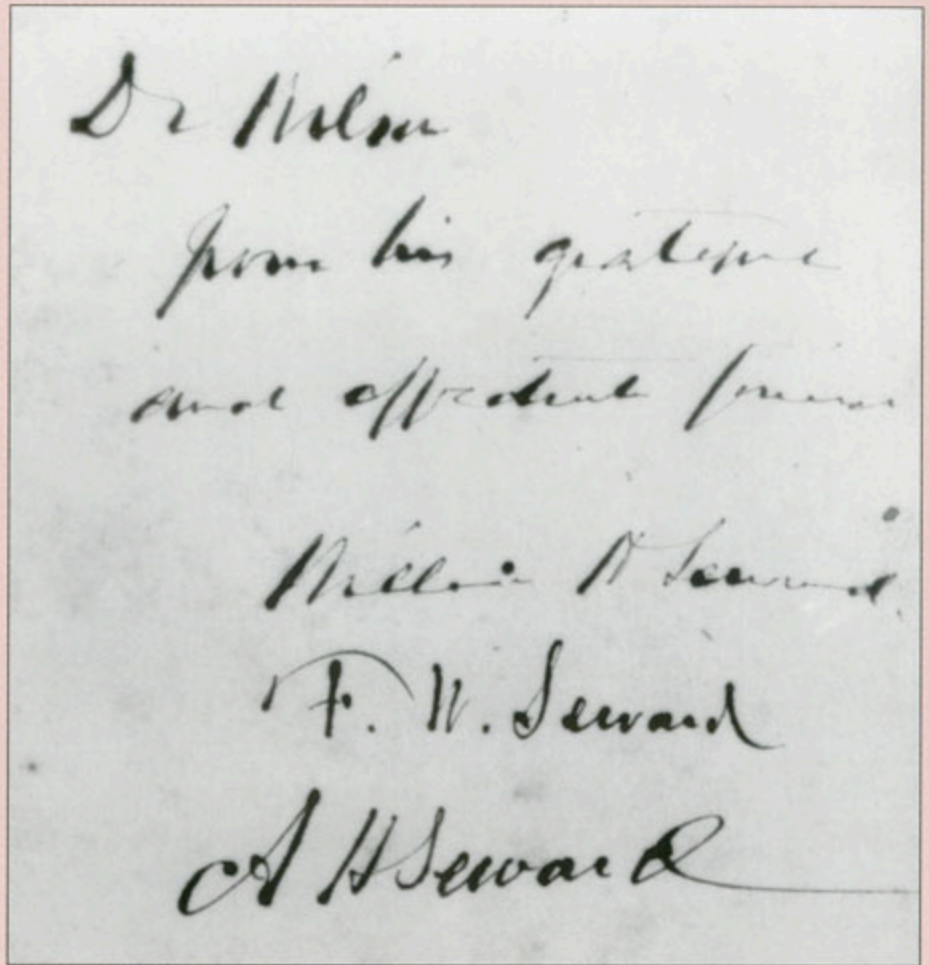 Dr Wilson
from his grateful
and affectionate friends
William H Seward
F. W. Seward
A H Seward